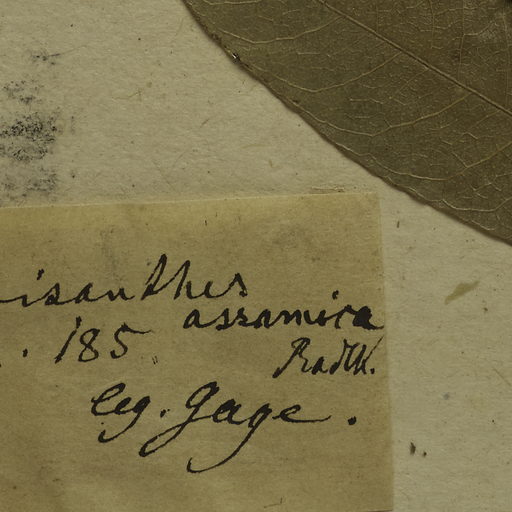 isanthes
assamica
. 185
Radlk.
leg. Gage.